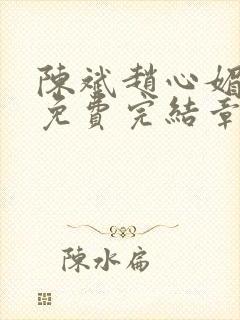 陳斌趙心媚
免費完結章
陳水扁